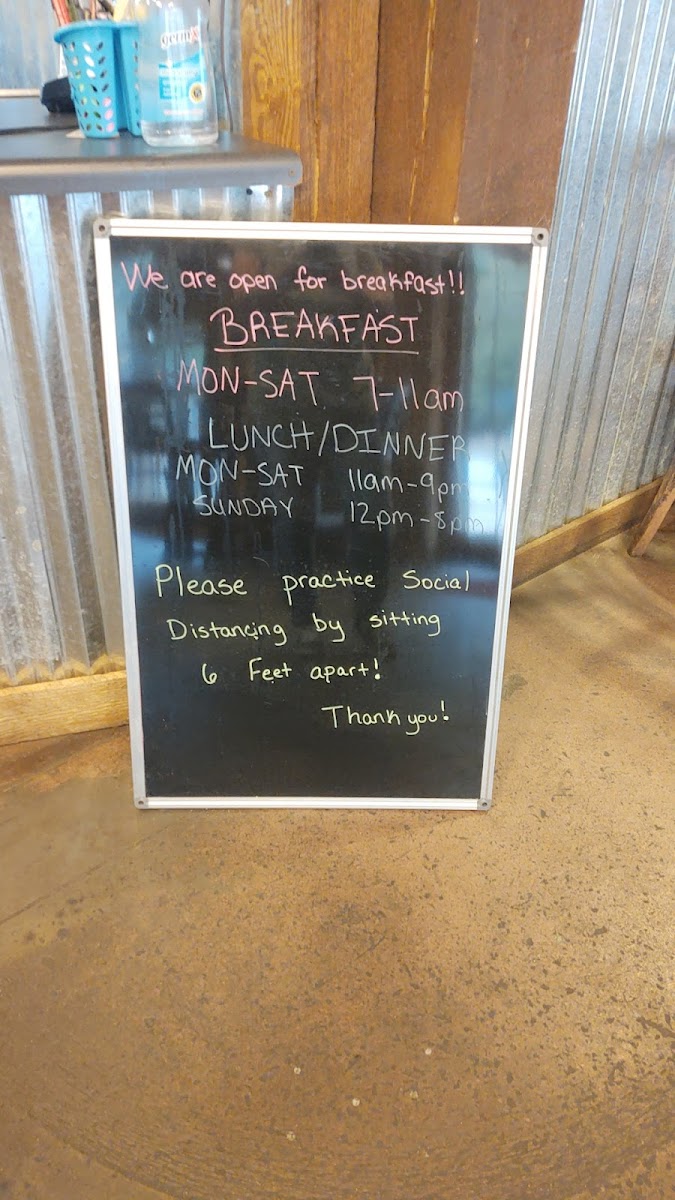 germx
We are open for breakfast!!
BREAKFAST
MON-SAT 7-11am
LUNCH/DINNER
MON-SAT 11am-9pm
SUNDAY 12pm-8pm
Please practice Social
Distancing by sitting
6 Feet apart!
Thank you!